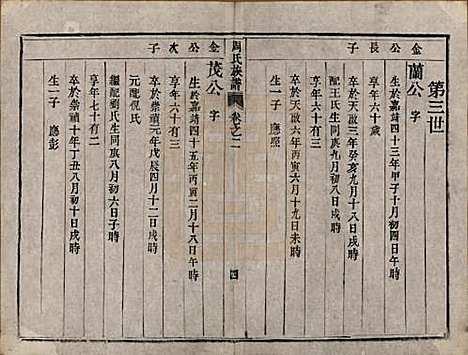 第三世
金公長子
蘭公字
生於嘉靖四十三年甲子十月初四日午時
卒於天啟三年癸亥九月十八日戌時
享年六十歲
配王氏生同庚九月初八日辰時
卒於天啟六年丙寅六月十九日未時
享年六十有三
生一子 應熙
周氏族譜 卷之二 四
金公次子
茂公字
生於嘉靖四十五年丙寅二月十八日午時
卒於崇禎元年戊辰四月十二日戌時
享年六十有三
元配倪氏
繼配劉氏生同庚八月初六日子時
卒於崇禎十年丁丑八月初十日戌時
享年七十有二
生一子 應彭